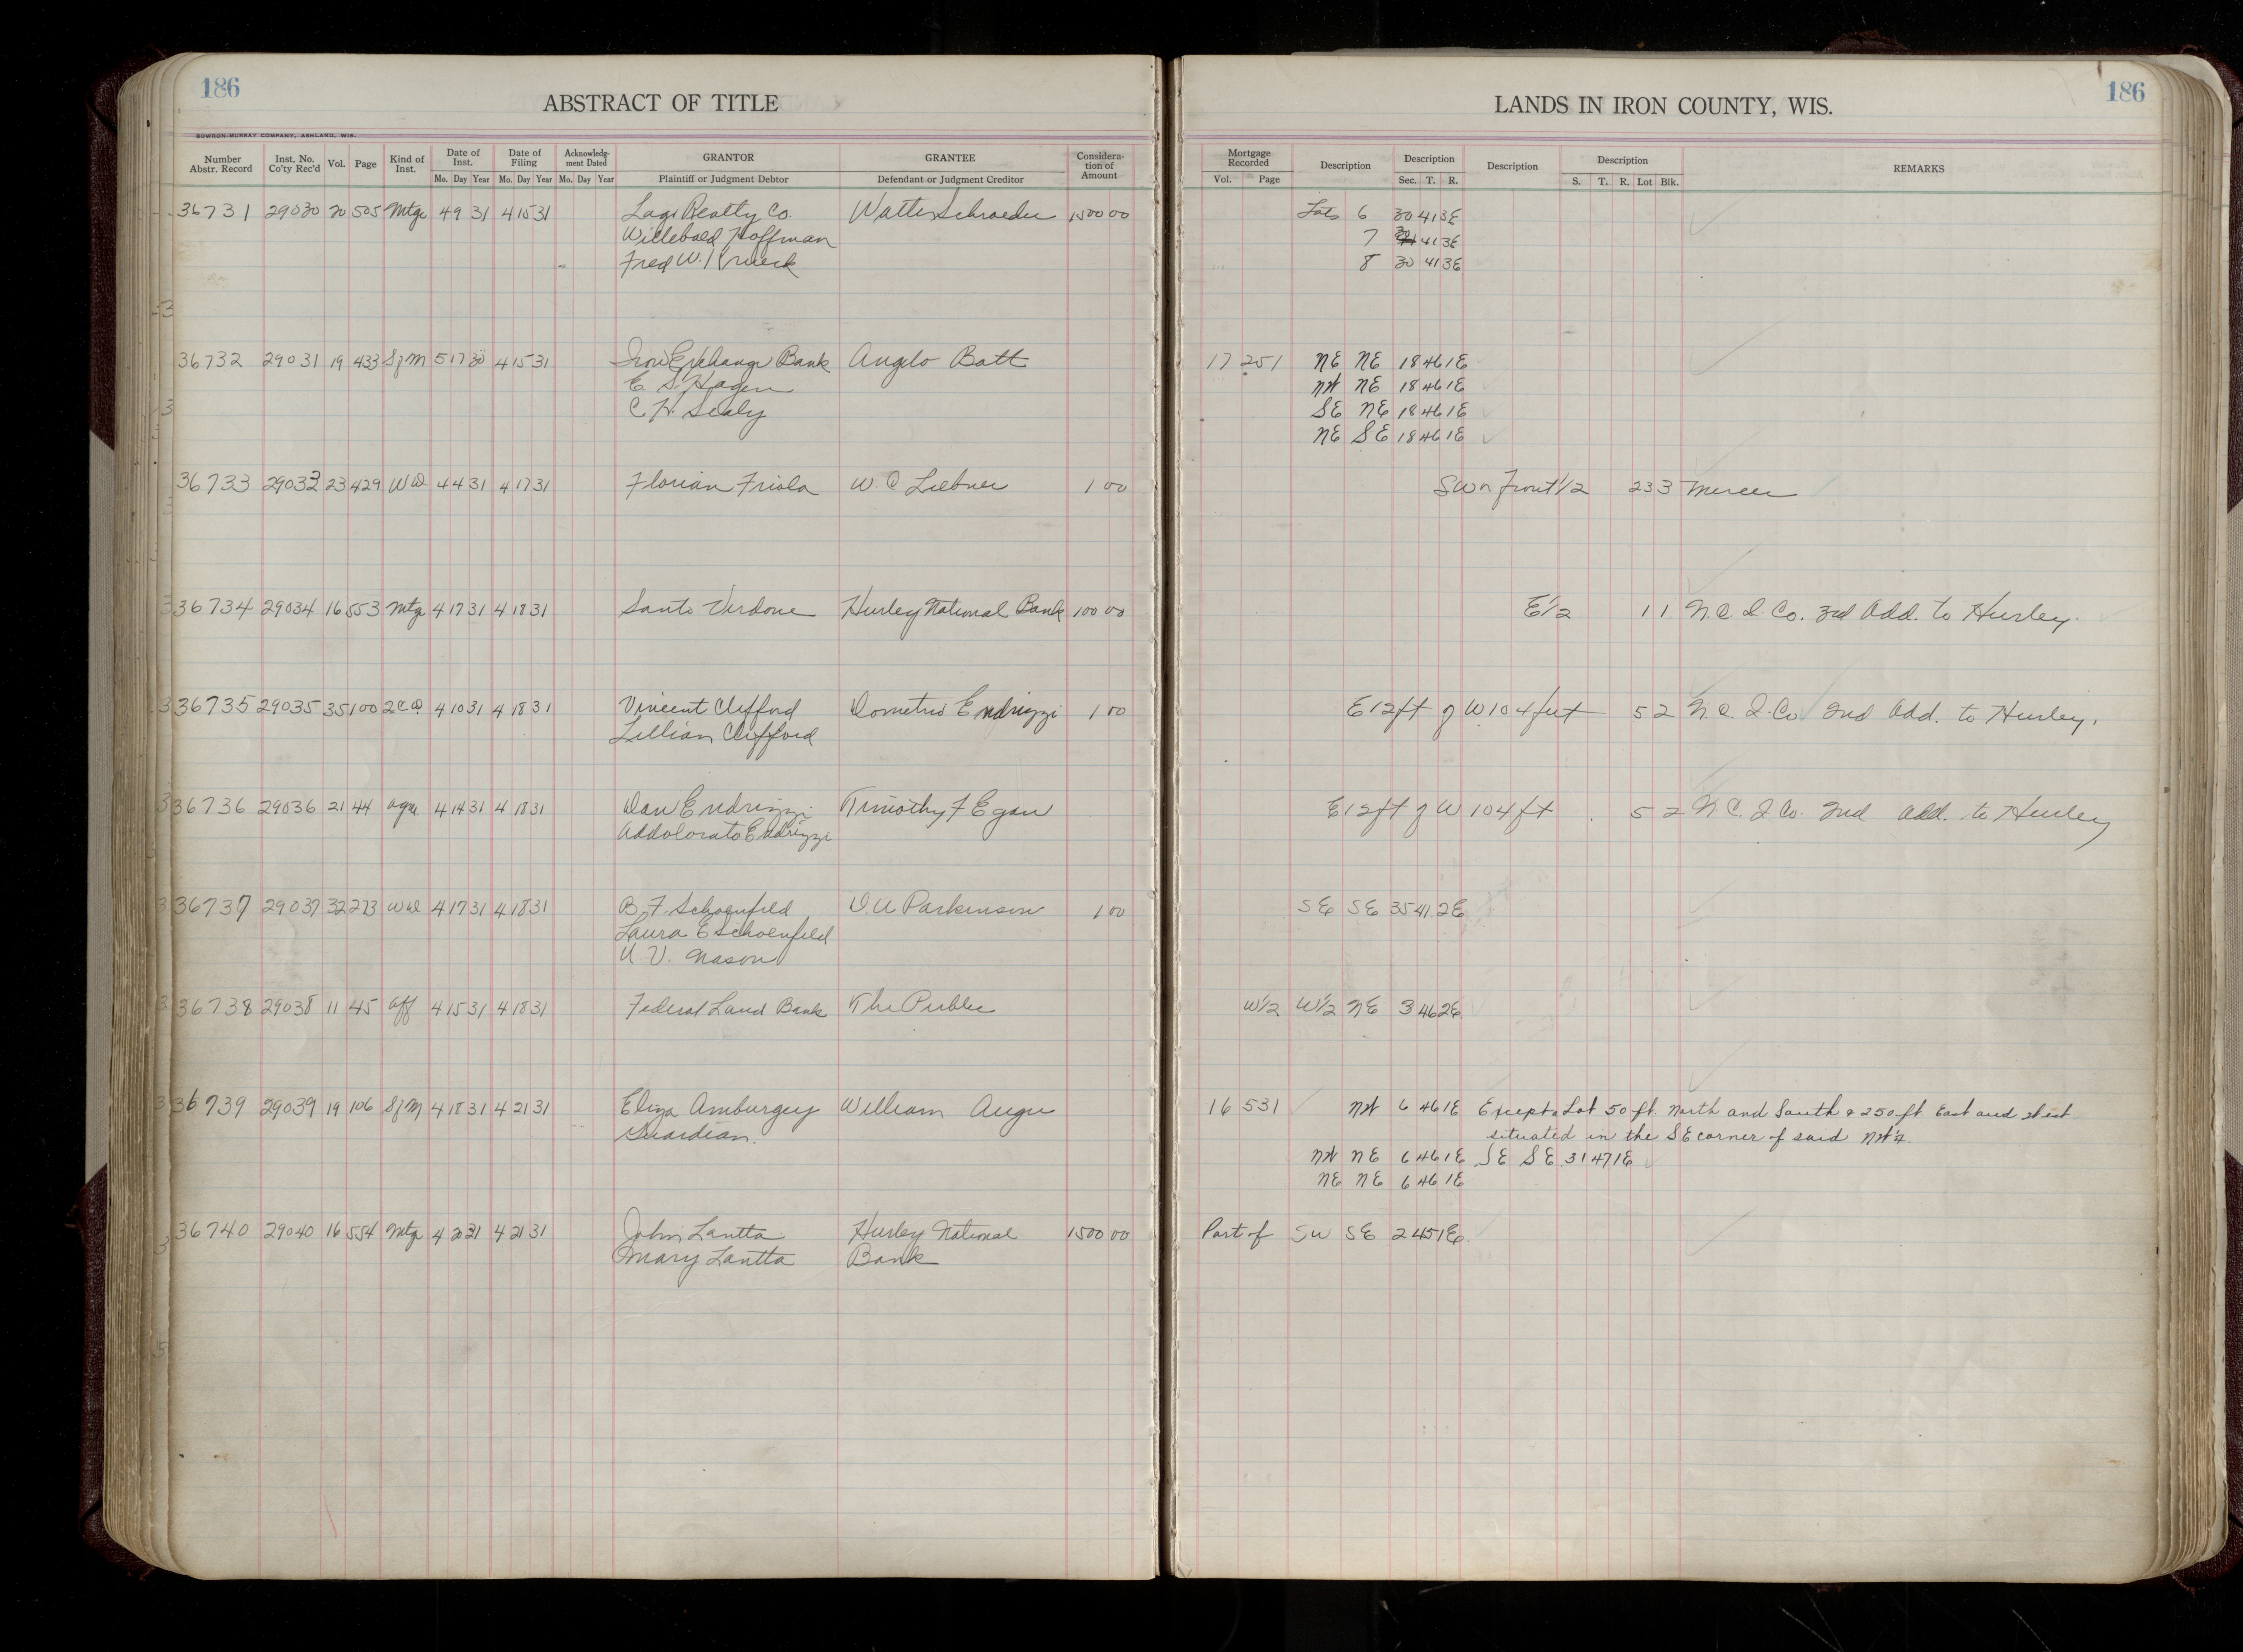 186
ABSTRACT OF TITLE
BOWRON-MURRAY COMPANY, ASHLAND, WIS.
Number Abstr. Record Inst. No. Co'ty Rec'd Vol. Page Kind of Inst. Date of Inst. Date of Filing Acknowledg-ment Dated GRANTOR GRANTEE Considera-tion of Amount
Mo. Day Year Mo. Day Year Mo. Day Year Plaintiff or Judgment Debtor Defendant or Judgment Creditor
36731 29030 20 505 Mtge 4 9 31 4 15 31 Realty Co. Walter Schroeder 1500 00
Willebald Hoffman
Fred W.
36732 29031 19 433 S/M 5 17 30 4 15 31 Iron Exchange Bank Angelo Batt
E. S. Hagen
C H Sealy
36733 29032 23 429 WD 4 4 31 4 17 31 Florian Friola W. C Liebner 1 00
36734 29034 16 553 Mtg 4 17 31 4 18 31 Santo Verdone Hurley National Bank 100 00
36735 29035 35 100 2CD 4 10 31 4 18 31 Vincent Clifford Endrizzi 1 00
Lillian Clifford
36736 29036 21 44 4 14 31 4 18 31 Dan Endrizzi Timothy F Egan
Addolorato Endrizzi
36737 29037 32 273 Wd 4 17 31 4 18 31 B. F. Schoenfeld D. U Parkinson 1 00
Laura E Schoenfeld
U. V. Nason
36738 29038 11 45 Aff 4 15 31 4 18 31 Federal Land Bank The Public
36739 29039 19 106 S/M 4 18 31 4 21 31 Eliza Amburgey William
Guardian.
36740 29040 16 554 Mtg 4 20 31 4 21 31 John Lantta Hurley National 1500 00
Mary Lantta Bank
186
LANDS IN IRON COUNTY, WIS.
Mortgage Recorded Description Description Description Description REMARKS
Vol. Page Sec. T. R. S. T. R. Lot Blk.
Lots 6 30 41 3E
7 41 3E
8 30 41 3E
17 251 NE NE 18 46 1E
NW NE 18 46 1E
SE NE 18 46 1E
NE SE 18 46 1E
Front 1/2 23 3 Mercer
E1/2 1 1 N. C. I. Co. 3rd Add. to Hurley.
E 12ft of W 104 feet 5 2 N. C. I. Co 2nd Add. to Hurley.
E 12 ft of W 104 ft 5 2 N C. I Co. 2nd Add. to Hurley
SE SE 35 41 2E
W1/2 W1/2 NE 3 46 2E
16 531 NW 6 46 1E Except a Lot 50 ft. North and South & 250 ft. East and West
situated in the SE corner of said NW1/4.
NW NE 6 46 1E SE SE 31 47 1E
NE NE 6 46 1E
Part of SW SE 2 45 1E